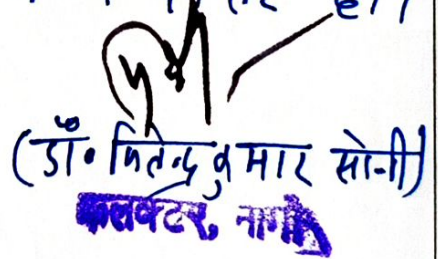 (डॉ॰ जितेन्द्र कुमार सोनी)
कलक्टर, नागौर